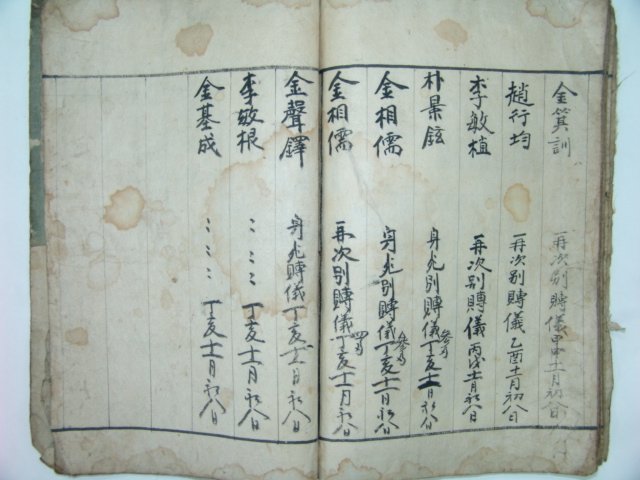 金箕訓 再次別賻儀 甲申十一月初八日
趙行均 再次別賻儀 乙酉十一月初八日
李敏植 再次別賻儀 丙戌十一月初八日
朴景鉉 身死別賻儀 參百 丁亥十一月初八日
金相儒 身死別賻儀 參百 丁亥十一月初八日
金相儒 再次別賻儀 四百 丁亥十一月初八日
金聲鐸 身死賻儀 丁亥十一月初八日
李敏根 〻〻〻 丁亥十一月初八日
金基成 〻〻〻 丁亥十一月初八日